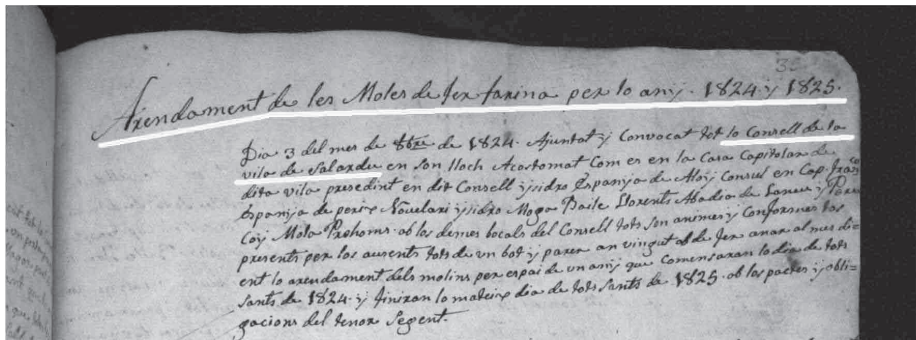 35
Arendament de les Moles de fer farina per lo anÿ. 1824 ÿ 1825.
Dia 3 del mes de 8bre de 1824. Ajuntat ÿ Convocat tot lo Consell de la
vila de Salardu en son lloch Acostomat Com es en la Casa Capitolar de
dita vila presedint en dit Consell ÿsidro Espanÿa de Aloÿ Consul en Cap. Fran.co
Espanÿa de peric Novelari ÿsidro Moga Baile Llorents Abadia de ÿ
Coÿ Mola Prohoms. ab los demes bocals del Consell tots son animes ÿ Conformes tos
presents per los ausents tots de un bot ÿ parer an vingut ab de fer anar al mes di-
ent lo arendament dels molins per espai de un anÿ que comensaran lo dia de tots
sants de 1824. ÿ finiran lo mateix dia de tots sants de 1825. ab los pactes ÿ obli-
gacions del tenor Segent.